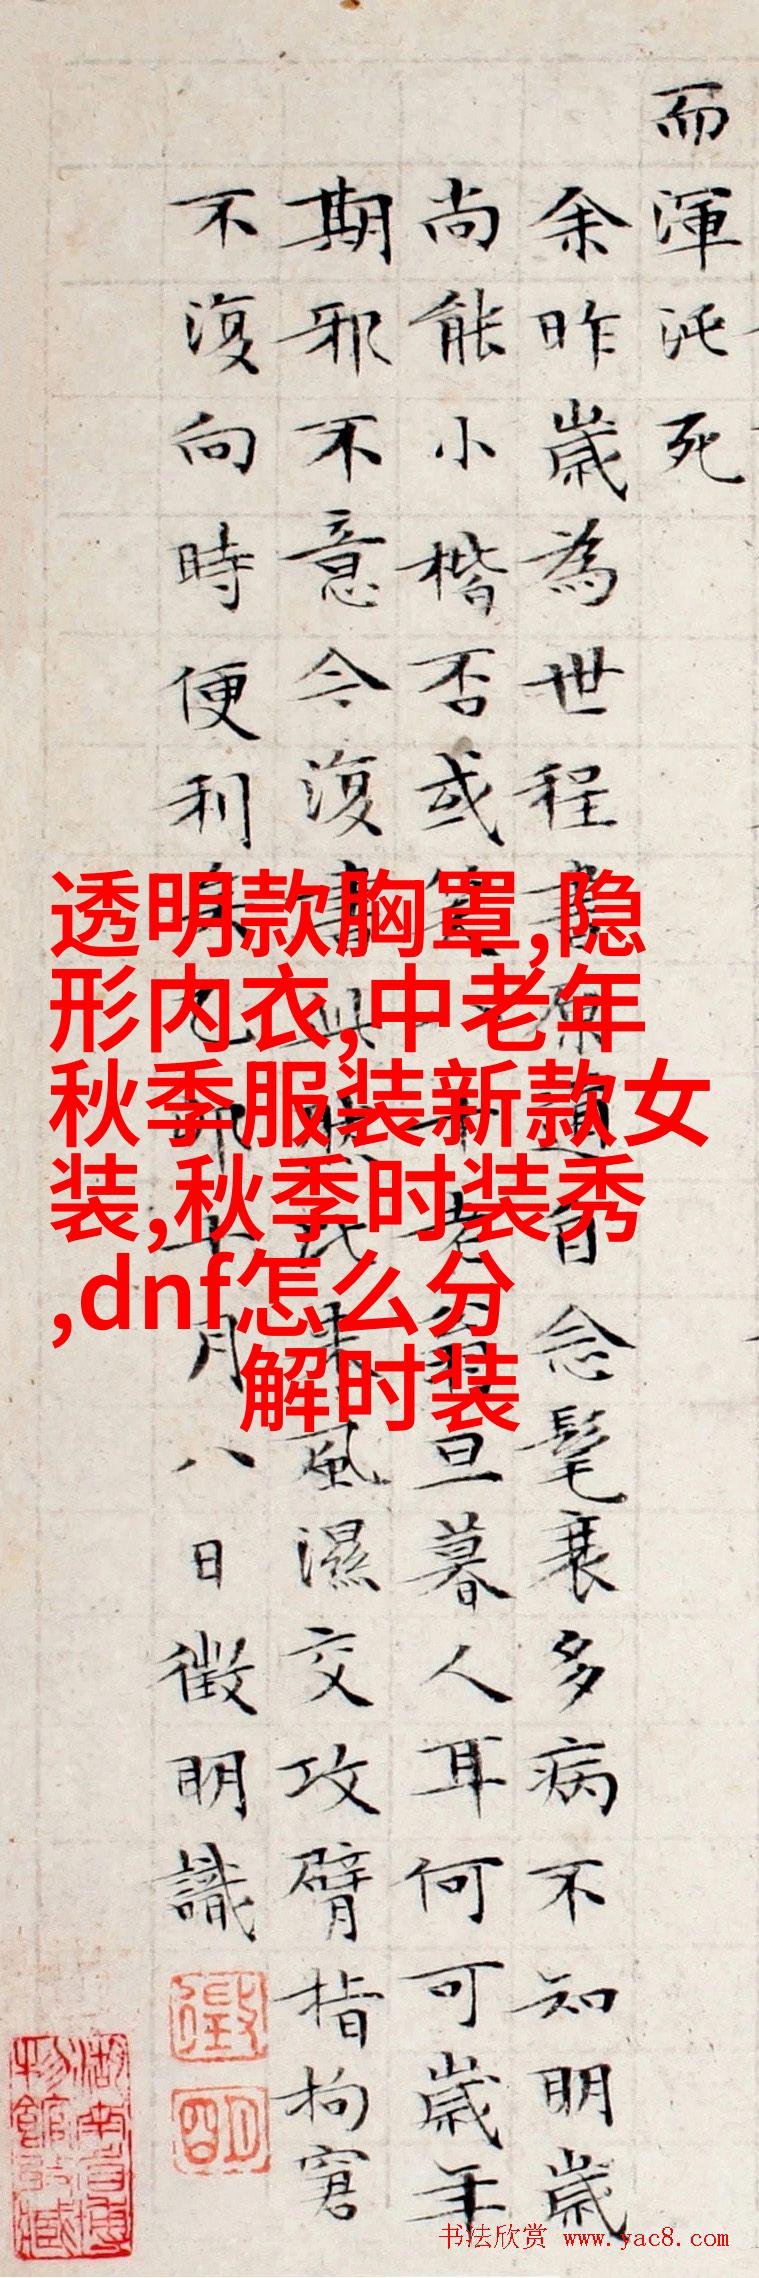 而渾沌死
余昨歲為世程書原道自念髦衰多病不知明歲
尚能小楷否或笑八十老翁旦暮人耳何可歲年
期邪不意今復書此來風濕交攻臂指拘窘
不復向時便利矣乙卯十月八日徵明識
透明款胸罩,隐
形内衣,中老年
秋季服装新款女
装,秋季时装秀
,dnf怎么分
解时装
徵
明
书法欣赏 www.yac8.com